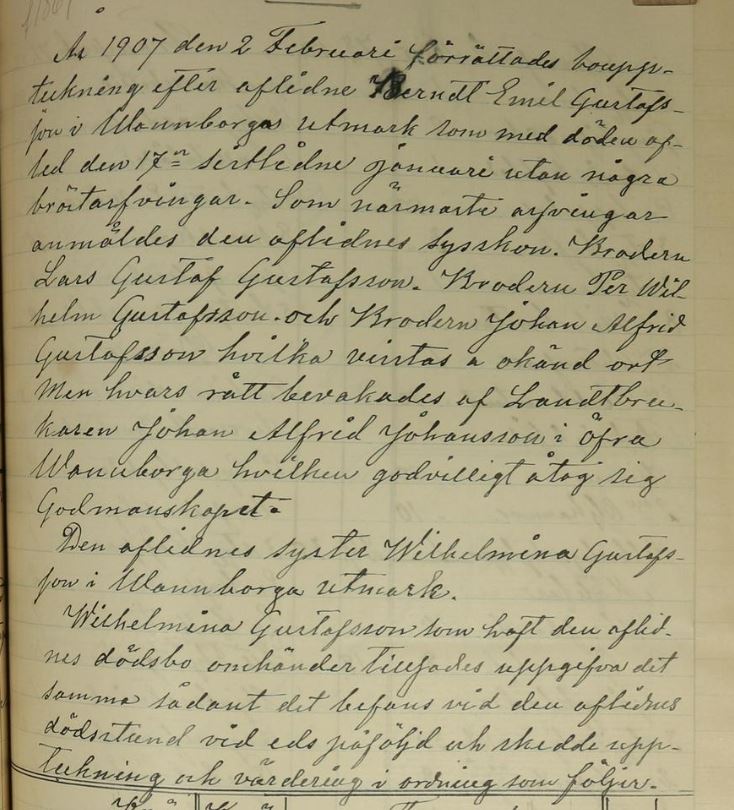 År 1907 den 2 Februari förrättades boupp-
teckning efter aflidne Berndt Emil Gustafs-
son i Wannborga utmark som med döden af-
led den 17de sistlidne Januari utan några
bröstarfvingar. Som närmaste arfvingar
anmäldes den aflidnes syskon. Brodern
Lars Gustaf Gustafsson. Brodern Per Wil-
helm Gustafsson. och Brodern Johan Alfrid
Gustafsson hvilka vistas a okänd ort
Men hvars rätt bevakades af Landtbru-
karen Johan Alfrid Johansson i öfra
Wannborga hvilken godvilligt åtog sig
Godmanskapet.
Den aflidnes syster Wilhelmina Gustafs-
son i Wannborga utmark.
Wilhelmina Gustafsson som haft den aflid-
nes dödsbo omhänder tillsades uppgifva det
samma sådant det befans vid den aflidnes
dödsstund vid eds påföljd och skedde upp-
teckning och värdering i ordning som följer.